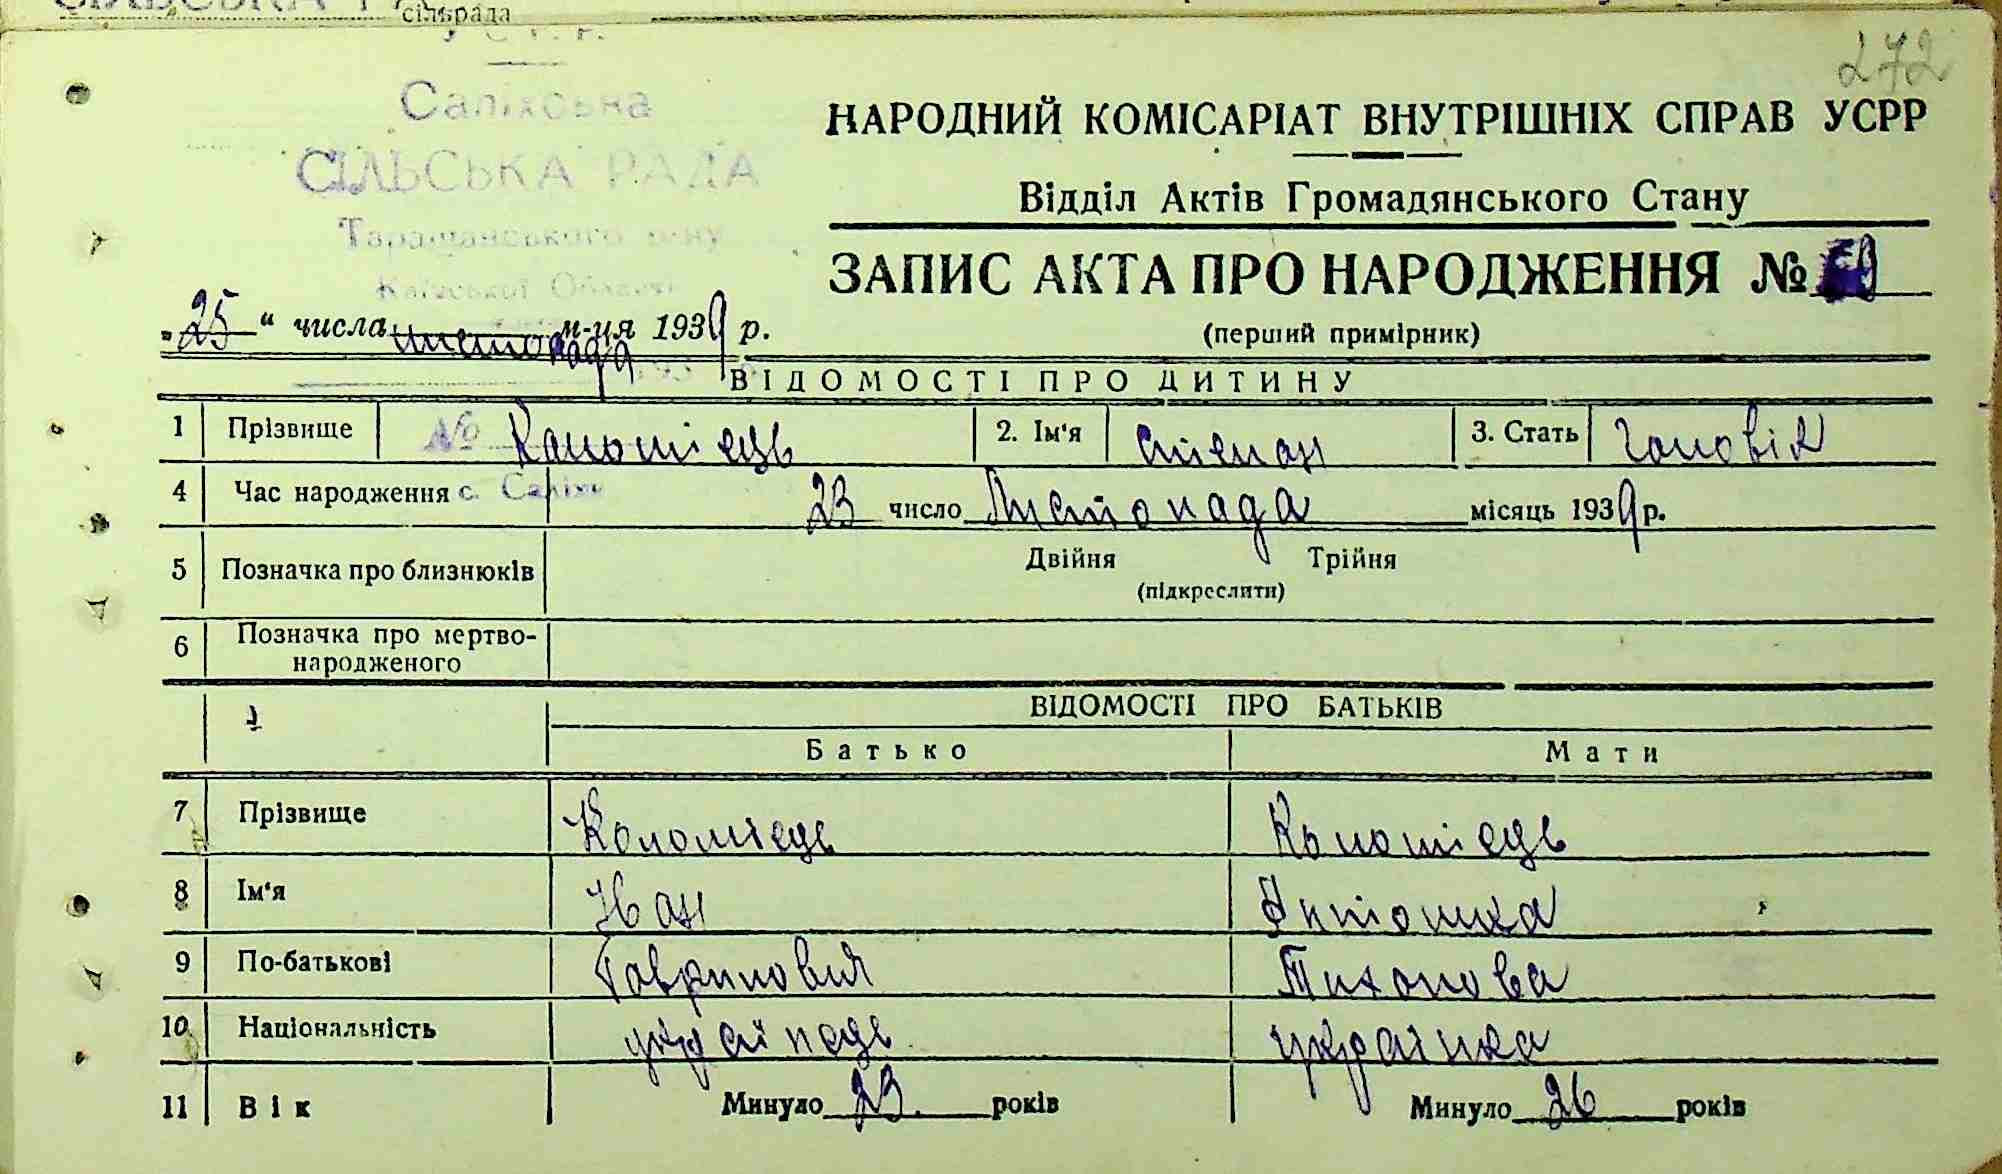 сільрада
272
Саліхська
СІЛЬСЬКА РАДА
Таращанського р-ну
Київської Області
НАРОДНИЙ КОМІСАРІАТ ВНУТРІШНІХ СПРАВ УСРР
Відділ Актів Громадянського Стану
ЗАПИС АКТА ПРО НАРОДЖЕННЯ №
(перший примірник)
„25“ числа листопада м-ця 1939 р.
ВІДОМОСТІ ПРО ДИТИНУ
1 Прізвище № Коломієць 2. Ім'я Степан 3. Стать Чоловік
4 Час народження с. Саліхи 23 число Листопада місяць 1939 р.
5 Позначка про близнюків Двійня Трійня
(підкреслити)
6 Позначка про мертво-
народженого
ВІДОМОСТІ ПРО БАТЬКІВ
Батько Мати
7 Прізвище Коломієць Коломієць
8 Ім'я Іван
9 По-батькові Гаврилович Тихонова
10 Національність українець українка
11 Вік Минуло 23 років Минуло 26 років